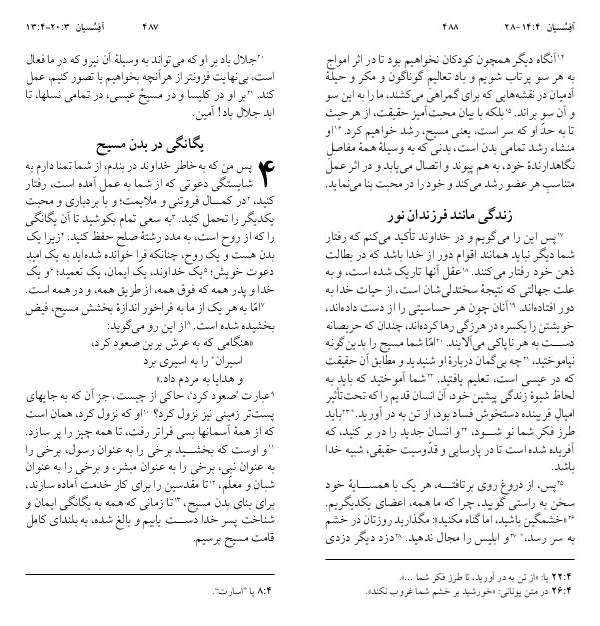 اَفِسُسیان ۲۰:۳-۱۳:۴
۴۸۷
۲۰جلال باد بر او که می‌تواند به وسیلهٔ آن نیرو که در ما فعال
است، بی‌نهایت فزونتر از هرآنچه بخواهیم یا تصور کنیم، عمل
کند. ۲۱بر او در کلیسا و در مسیحْ عیسی، در تمامی نسلها، تا
ابد جلال باد! آمین.
یگانگی در بدن مسیح
۴ پس من که به‌خاطر خداوند در بندم، از شما تمنا دارم به
شایستگی دعوتی که از شما به عمل آمده است، رفتار
کنید، ۲در کمال فروتنی و ملایمت؛ و با بردباری و محبت
یکدیگر را تحمل کنید. ۳به سعی تمام بکوشید تا آن یگانگی
را که از روح است، به مدد رشتهٔ صلح حفظ کنید. ۴زیرا یک
بدن هست و یک روح، چنانکه فرا خوانده شده‌اید به یک امیدِ
دعوت خویش؛ ۵یک خداوند، یک ایمان، یک تعمید؛ ۶و یک
خدا و پدر همه که فوق همه، از طریق همه، و در همه است.
۷امّا به هر یک از ما به فراخور اندازهٔ بخشش مسیح، فیض
بخشیده شده است. ۸از این رو می‌گوید:
«هنگامی که به عرش برین صعود کرد،
اسیران* را به اسیری برد
و هدایا به مردم داد.»
۹عبارت ’صعود کرد‘، حاکی از چیست، جز آن که به جایهای
پست‌تر زمینی نیز نزول کرد؟ ۱۰او که نزول کرد، همان است
که از همهٔ آسمانها بسی فراتر رفت، تا همه چیز را پر سازد.
۱۱و اوست که بخشید برخی را به عنوان رسول، برخی را
به عنوان نبی، برخی را به عنوان مبشر، و برخی را به عنوان
شبان و معلّم، ۱۲تا مقدسین را برای کار خدمت آماده سازند،
برای بنای بدن مسیح، ۱۳تا زمانی که همه به یگانگی ایمان و
شناخت پسر خدا دست یابیم و بالغ شده، به بلندای کامل
قامت مسیح برسیم.
۸:۴ یا ”اسارت“.
۴۸۸
اَفِسُسیان ۱۴:۴-۲۸
۱۴آنگاه دیگر همچون کودکان نخواهیم بود تا در اثر امواج
به هر سو پرتاب شویم و باد تعالیم گوناگون و مکر و حیلهٔ
آدمیان در نقشه‌هایی که برای گمراهی می‌کشند، ما را به این سو
و آن سو براند. ۱۵بلکه با بیان محبت‌آمیز حقیقت، از هر حیث
تا به حدّ او که سر است، یعنی مسیح، رشد خواهیم کرد. ۱۶او
منشاء رشد تمامی بدن است، بدنی که به وسیلهٔ همهٔ مفاصل
نگاهدارندهٔ خود، به هم پیوند و اتصال می‌یابد و در اثر عمل
متناسبِ هر عضو رشد می‌کند و خود را در محبت بنا می‌نماید.
زندگی مانند فرزندان نور
۱۷پس این را می‌گویم و در خداوند تأکید می‌کنم که رفتار
شما دیگر نباید همانند اقوام دور از خدا باشد که در بطالت
ذهن خود رفتار می‌کنند. ۱۸عقل آنها تاریک شده است، و به
علت جهالتی که نتیجهٔ سختدلی‌شان است، از حیات خدا به
دور افتاده‌اند. ۱۹آنان چون هر حساسیتی را از دست داده‌اند،
خویشتن را یکسره در هرزگی رها کرده‌اند، چندان که حریصانه
دست به هر ناپاکی می‌آلایند. ۲۰امّا شما مسیح را بدین‌گونه
نیاموختید، ۲۱چه بی‌گمان دربارهٔ او شنیدید و مطابق آن حقیقت
که در عیسی است، تعلیم یافتید. ۲۲شما آموختید که باید به
لحاظ شیوهٔ زندگی پیشین خود، آن انسان قدیم را که تحت‌تأثیر
امیال فریبنده دستخوش فساد بود، از تن به در آورید.* ۲۳باید
طرز فکر شما نو شود، ۲۴و انسان جدید را در بر کنید، که
آفریده شده است تا در پارسایی و قدّوسیت حقیقی، شبیه خدا
باشد.
۲۵پس، از دروغ روی برتافته، هر یک با همسایهٔ خود
سخن به راستی گویید، چرا که ما همه، اعضای یکدیگریم.
۲۶«خشمگین باشید، اما گناه مکنید»: مگذارید روزتان در خشم
به سر رسد،* ۲۷و ابلیس را مجال ندهید. ۲۸دزد دیگر دزدی
۲۲:۴ یا: «از تن به در آورید، تا طرز فکر شما ...».
۲۶:۴ در متن یونانی: «خورشید بر خشم شما غروب نکند».